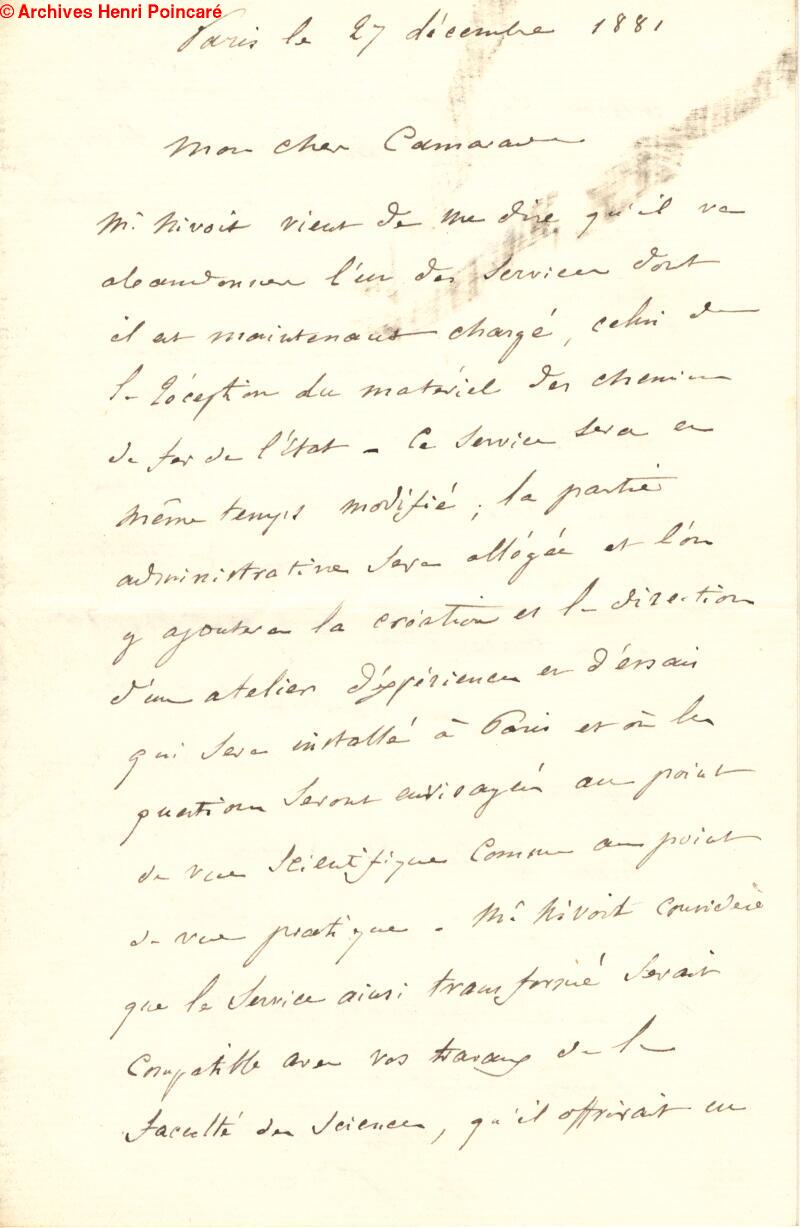 © Archives Henri Poincaré
Paris le 27 décembre 1881
Mon cher Camarade
Mr. Nivoit vient de me dire qu'il va
abandonner l'un des services dont
il est maintenant chargé, celui de
la réception du matériel des chemins
de fer de l'État - Ce service sera en
même temps modifié ; la partie
administrative sera allégée et l'on
y ajoutera la création et la direction
d'un atelier d'expériences et d'essais
qui sera installé à Paris et où les
questions seront envisagées au point
de vue scientifique comme au point
de vue pratique - Mr. Nivoit considère
que le service ainsi transformé serait
compatible avec vos travaux de la
faculté des sciences, qu'il offrirait en